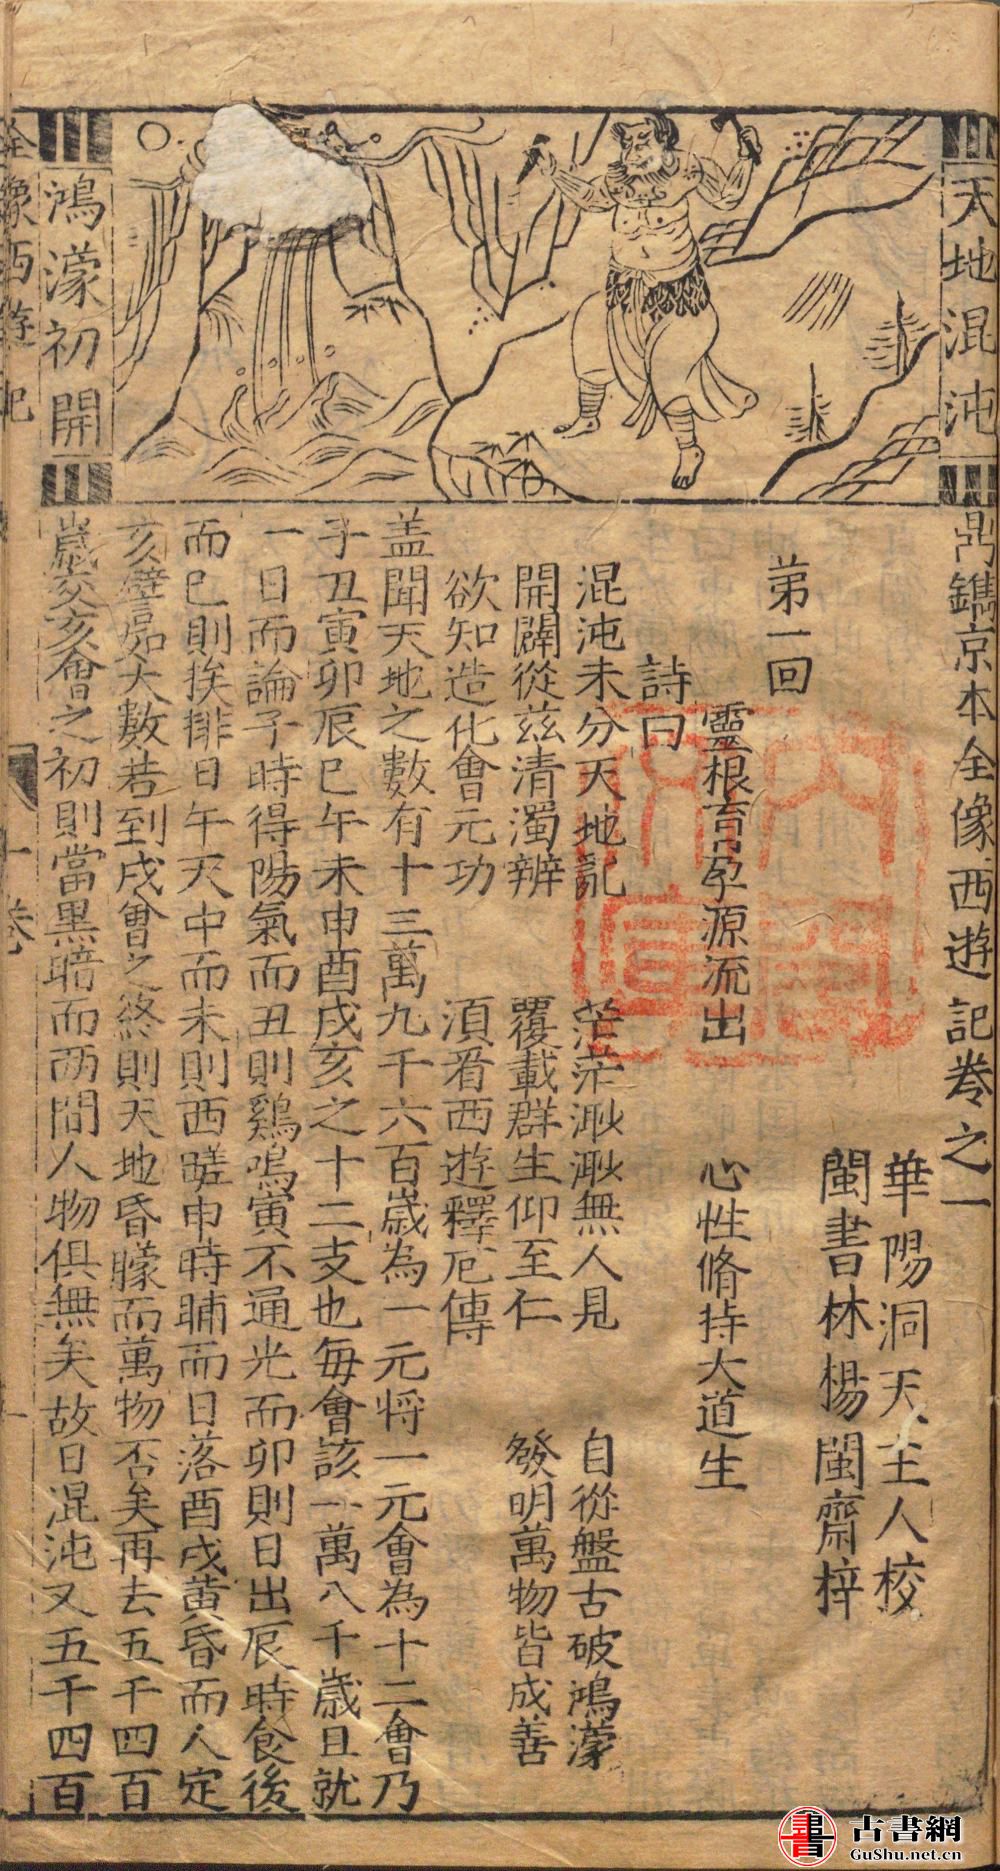 天地混沌
鴻濛初開
鼎鐫京本全像西遊記卷之一
華陽洞天主人校
閩書林楊閩齋梓
第一回
靈根育孕源流出 心性脩持大道生
詩曰
混沌未分天地亂 茫茫渺渺無人見 自從盤古破鴻濛
開闢從兹清濁辨 覆載群生仰至仁 發明萬物皆成善
欲知造化會元功 須看西遊釋厄傳
盖聞天地之數有十三萬九千六百歲為一元将一元會為十二會乃
子丑寅卯辰巳午未申酉戌亥之十二支也每會該一萬八千歲且就
一日而論子時得陽氣而丑則鷄鳴寅不通光而卯則日出辰時食後
而巳則挨排日午天中而未則西蹉申時晡而日落酉戌黄昏而人定
亥譬如大數若到戌會之終則天地昏矇而萬物否矣再去五千四百
歲交亥會之初則當黑暗而两間人物俱無矣故曰混沌又五千四百
全像西遊記
一卷
一
古書網
GuShu.net.cn